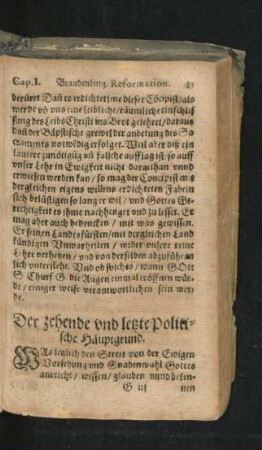 Cap. I. Brandenburg. Reformation. 85
derüret Dañ es erdichtet jme dieser Cōcipist / als
werde võ vns eine leibliche / räumliche einschlies
sung des Leibs Christi ins Brot gelehret / daraus
dañ der Bäpstische grewel der anbetung des Sa
craments notwēdig erfolget. Weil aber diß ein
lautere zunötigũg uñ falsche aufflag ist / so auff
vnser Lehr in Ewigkeit nicht dargethan vnnd
erwiesen werden kan / so mag der Concipist mit
dergleichen eigens willens erdichteten Fabeln
sich belüstigen so lang er wil / vnd Gottes Ge-
rechtigkeit es ihme nachhenget vnd zu lesset. Er
mag aber auch bedencken / mit was gewissen.
Er seinen Landsfürsten / mit dergleichen Land
kündigen Vnwarheiten / wider vnsere reine
Lehr verhetzen / vnd von derselben abzuführen
sich vntersteht. Vnd ob solches / wann GOtt
S. Churf. G. die Augen einmal eröffnen wür-
de / einiger weise verantwortlichen sein wer-
de.
Der zehende vnd letzte Politi-
sche Häuptgrund.
WAs letzlich den Streit von der Ewigen
Vorsehung vnd Gnadenwahl Gottes
antrifft / wissen / glauben vnnd beken-
G iij nen